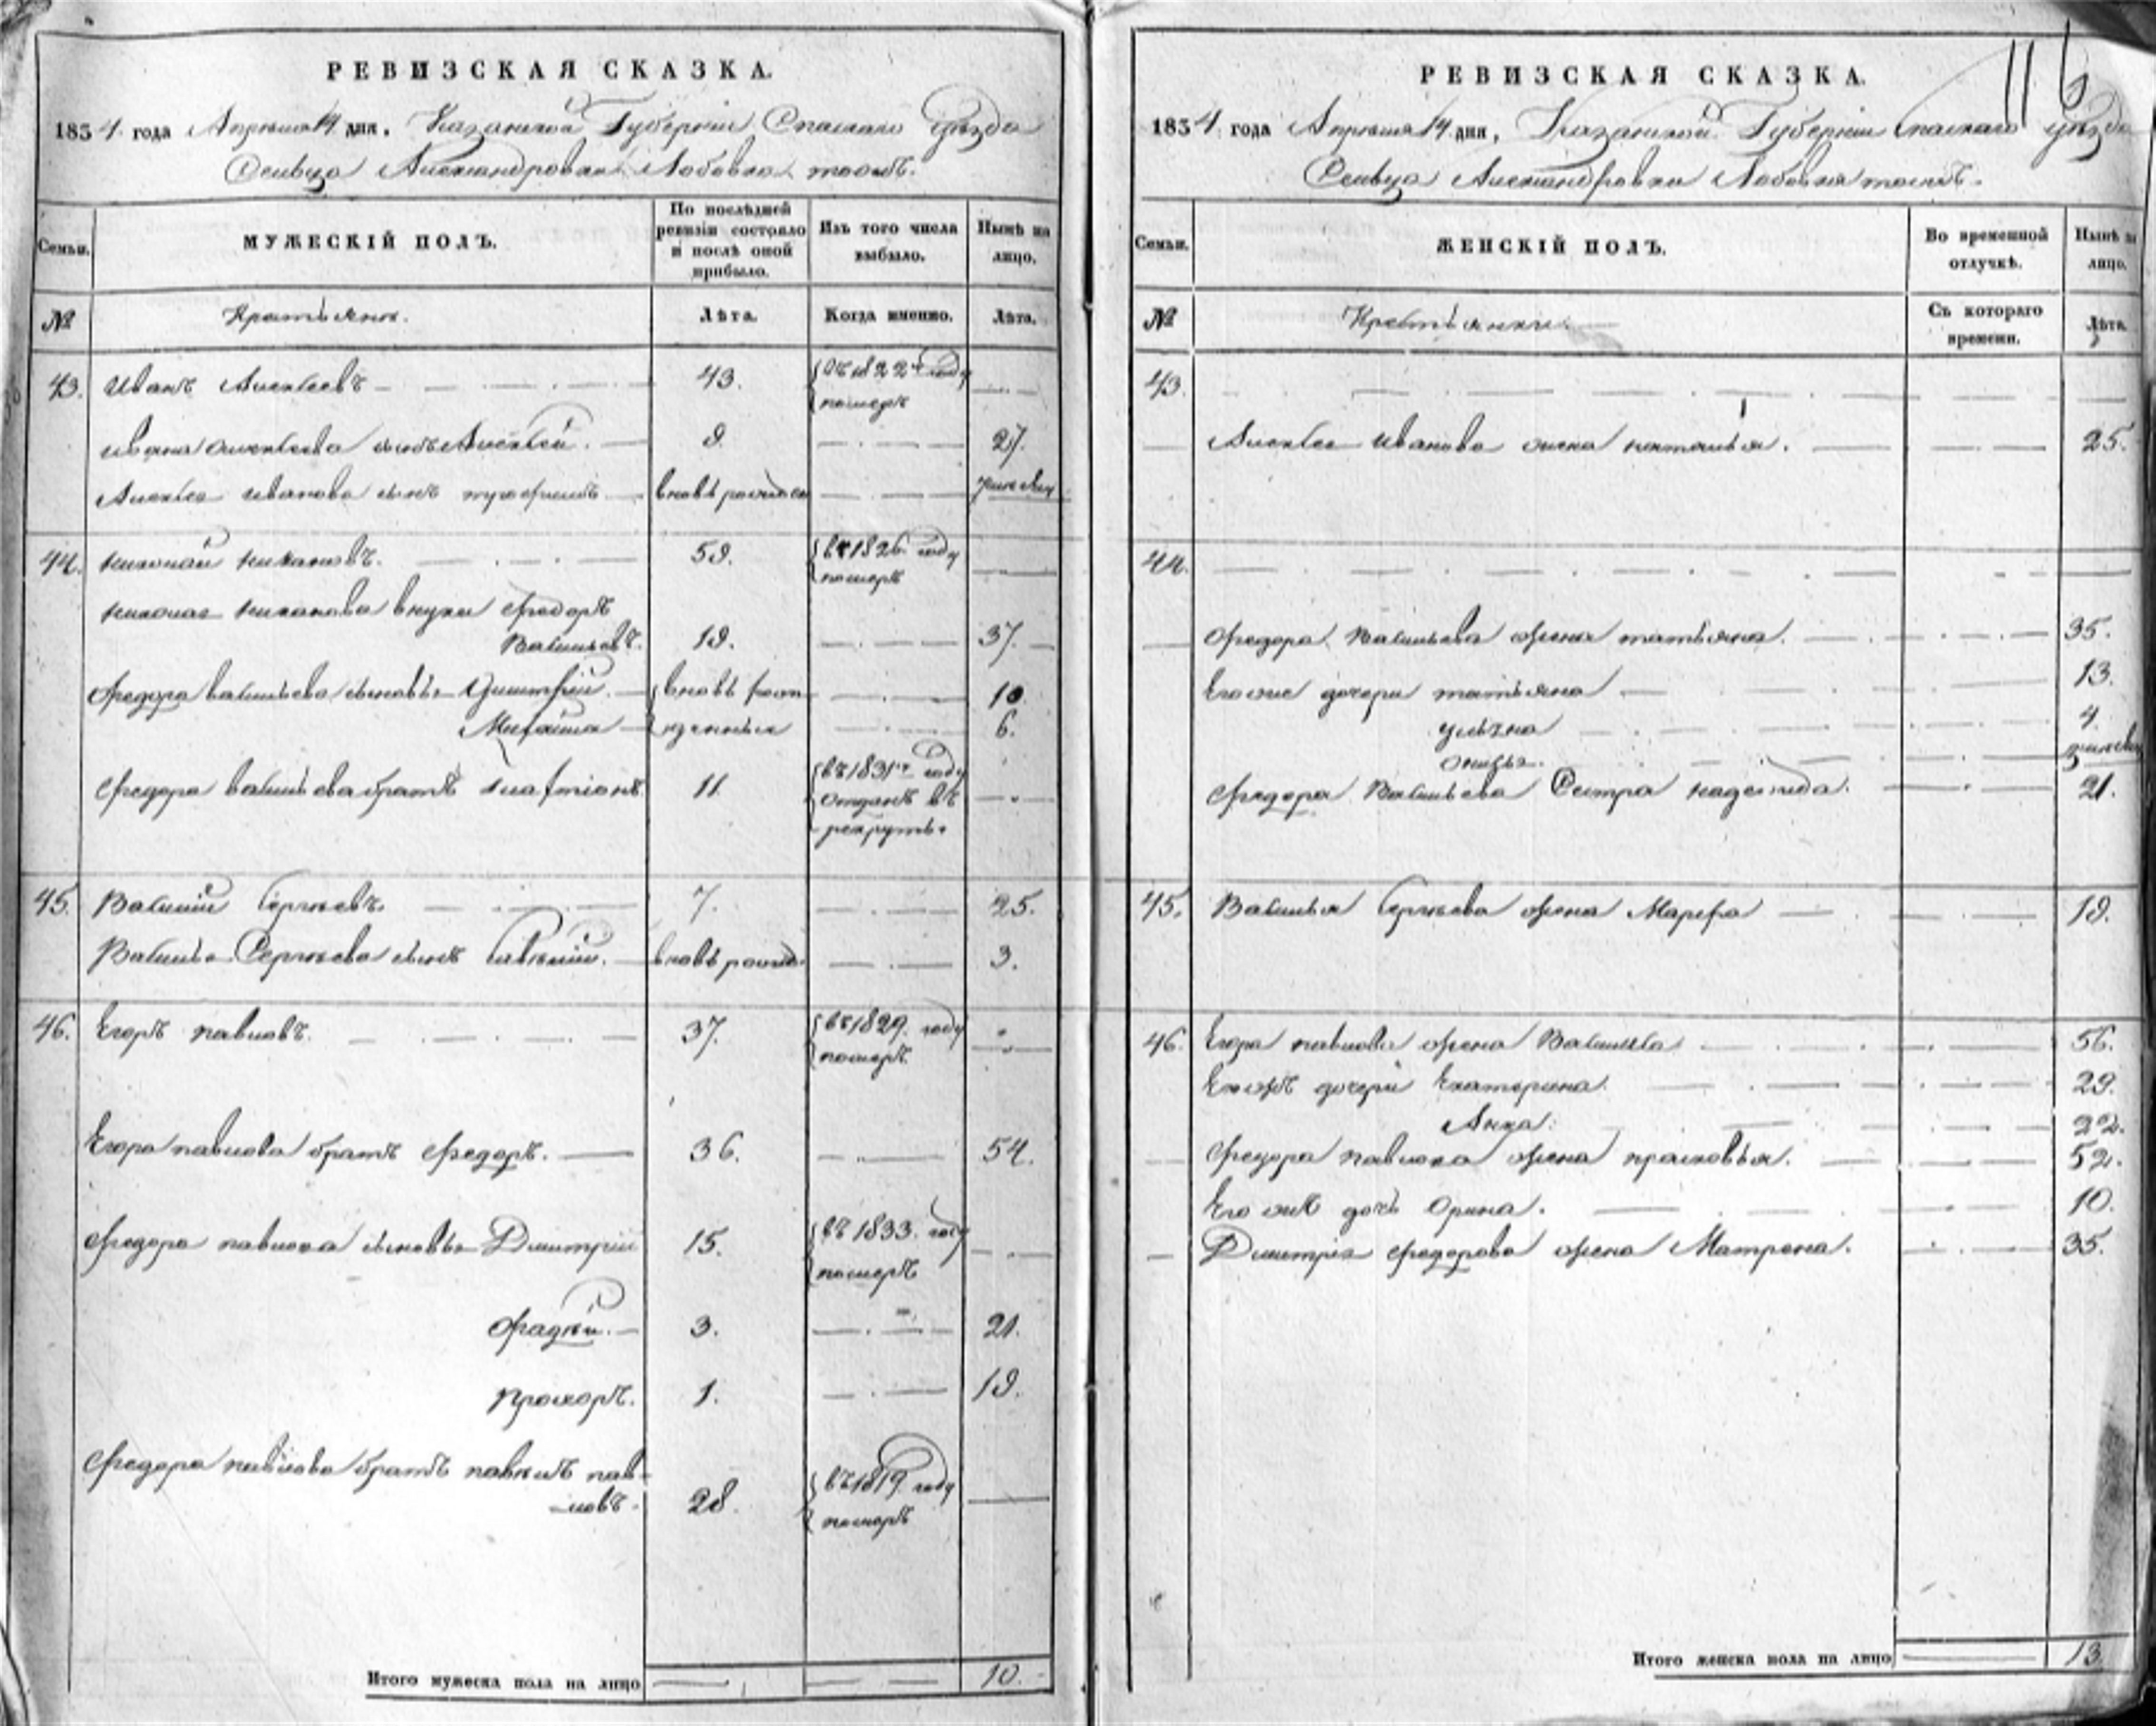 РЕВИЗСКАЯ СКАЗКА.
1834 года Апреля 14 дня, Казанской Губернiи Спаскаго уѣзда
Сельца Александровки Лобовка тожъ.
Семьи.
МУЖЕСКIЙ ПОЛЪ.
По послѣдней ревизiи состояло и послѣ оной прибыло.
Изъ того числа выбыло.
Нынѣ на лицо.
№
Крестьяни.
Лѣта.
Когда именно.
Лѣта.
43. Иванъ Алексѣевъ 43. въ 1822м году померъ
Ивана Алексѣева сынъ Алексѣй. 9. 27.
Алексѣя Иванова сынъ вновь рожден
44. Николай 59. въ 1826. году померъ
Николая внуки Федоръ
Васильевъ. 19. 37.
Федора Васильева сыновья Дмитрiй. вновь рож 10.
Михайла денныя 6.
Федора Васильева братъ 11. въ 1831м году отданъ въ рекруты.
45. Василiй Сергѣевъ. 7. 25.
Василья Сергѣева сынъ вновь рожден 3.
46. Егоръ Павловъ. 37. въ 1829. году померъ.
Егора Павлова братъ Федоръ. 36. 54.
Федора Павлова сыновья Дмитрiй 15. въ 1833. году померъ
Фадѣй. 3. 21.
Прохоръ. 1. 19.
Федора Павлова братъ Пав-
ловъ. 28. въ 1819. году померъ
Итого мужеска пола на лицо 10.
116
РЕВИЗСКАЯ СКАЗКА.
1834 года Апреля 14 дня, Казанской Губернiи Спаскаго уѣзда
Сельца Александровки Лобовка тожъ.
Семьи.
ЖЕНСКIЙ ПОЛЪ.
Во временной отлучкѣ.
Нынѣ на лицо.
№
Крестьянки.
Съ котораго времени.
Лѣта.
43.
Алексѣя Иванова жена Наталья. 25.
44.
Федора Васильева жена Татьяна. 35.
Его же дочери Татьяна 13.
4.
Федора Васильева Сестра Надежда. 21.
45. Василья Сергѣева жена Марфа 19.
46. Егора Павлова жена Василиса 56.
дочери Екатерина. 29.
Анна. 22.
Федора Павлова жена Прасковья. 52.
Его же дочь Орина. 10.
Дмитрiя Федорова жена Матрена. 35.
Итого женска пола на лицо 13.